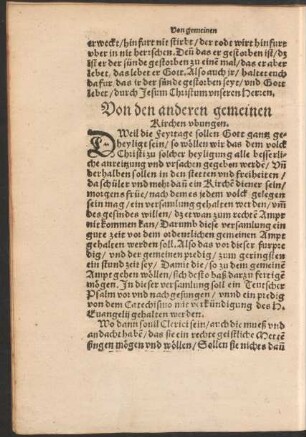 Von gemeinen
erweckt / hinfurt nit stirbt / der todt wirt hinfurt
vber in nit herrschen. Deñ das er gestorben ist / dz
ist er der sünde gestorben zu einẽ mal / das er aber
lebet / das lebet er Gott. Also auch ir / haltet euch
dafur / das ir der sünde gestorben seyt / vnd Gott
lebet / durch Jesum Christum vnseren Herren.
Von den anderen gemeinen
Kirchen vbungen.
DWeil die Feyrtage sollen Gott gantz ge-
heyliget sein / so wöllen wir das dem volck
Christi zu solcher heyligung alle besserli-
che anreitzung vnd vrsachen gegeben werde / Vñ
derhalben sollen in den stetten vnd freiheiten /
da schüler vnd mehr dañ ein Kirchẽ diener sein /
morgens früe / nach dem es jedem volck gelegen
sein mag / ein versamlung gehalten werden / vm̃
des gesindes willen / dz et wan zum rechtẽ Ampt
nit kommen kan / Darum̃b diese versamlung ein
gute zeit vor dem ordentlichen gemeinen Ampt
gehalten werden soll. Also das vor dieser furpre
dig / vnd der gemeinen predig / zum geringsten
ein stund zeit sey / Damit die / so zu dem gemeinẽ
Ampt gehen wöllen / sich desto baß darzu fertigẽ
mögen. In dieser versamlung soll ein Teutscher
Psalm vor vnd nach gesungen / vnnd ein predig
von dem Catechismo mit verkündigung des H.
Euangelij gehalten werden.
Wo dann souil Clerici sein / auch die mueß vnd
andacht habẽ / das sie ein rechte geistliche Mettẽ
singen mögen vnd wöllen / Sollen sie nichts dañ